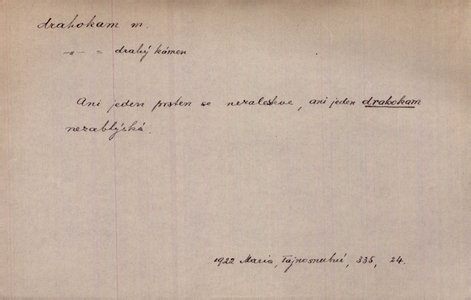 drahokam m.
-"- = drahý kámen
Ani jeden prsten se nezaleskne, ani jeden drahokam
nezablýská.
1922 Maria, Tajnosnubní, 335, 24.